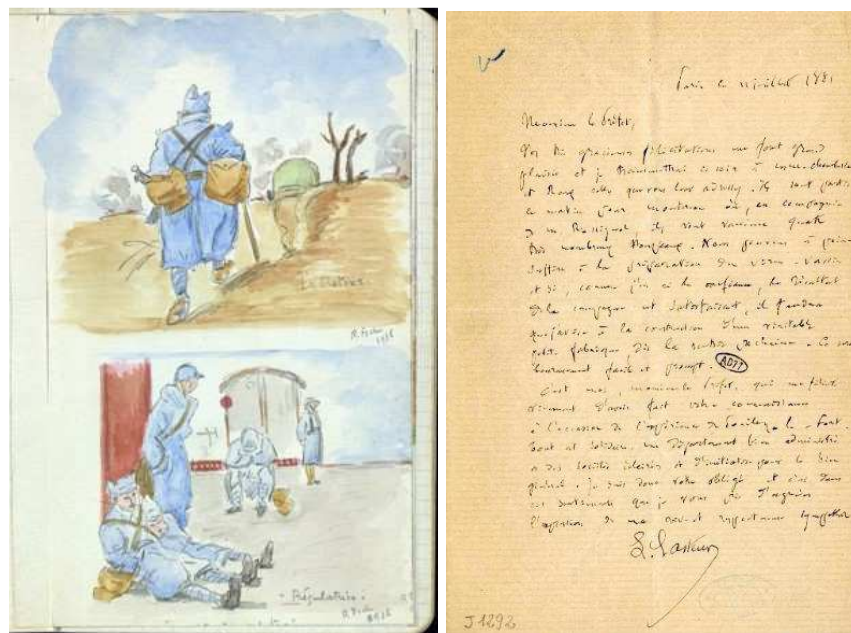 La relève.
R. F
1918
- Régulatrice -
R.
1918
Paris le juillet 1881
Monsieur le Préfet,
Vos très gracieuses félicitations me font grand
plaisir et je transmettrai ce soir à
et Roux celles que vous leur adressez. Ils sont partis
ce matin pour où, en compagnie
de M. Rossignol, ils vont vacciner quatre
très nombreux troupeaux. Nous pouvons à peine
suffire à la préparation du virus-vaccin
et si, comme j'en ai la confiance, le résultat
de la campagne est satisfaisant, il faudra
à la construction d'une véritable
petite fabrique, dès la rentrée prochaine. Ce sera
heureusement facile et prompt.
AD77
C'est moi, monsieur le Préfet, qui me félicite
vivement d'avoir fait votre connaissance
à l'occasion de l'expérience de Pouilly-le-Fort.
Tout est solidaire, un département bien administré
a des sociétés éclairées et d'initiative pour le bien
général. Je suis donc votre obligé et c'est dans
ces sentiments que je vous prie d'agréer
l'expression de ma respectueuse sympathie
L. Pasteur
J1292